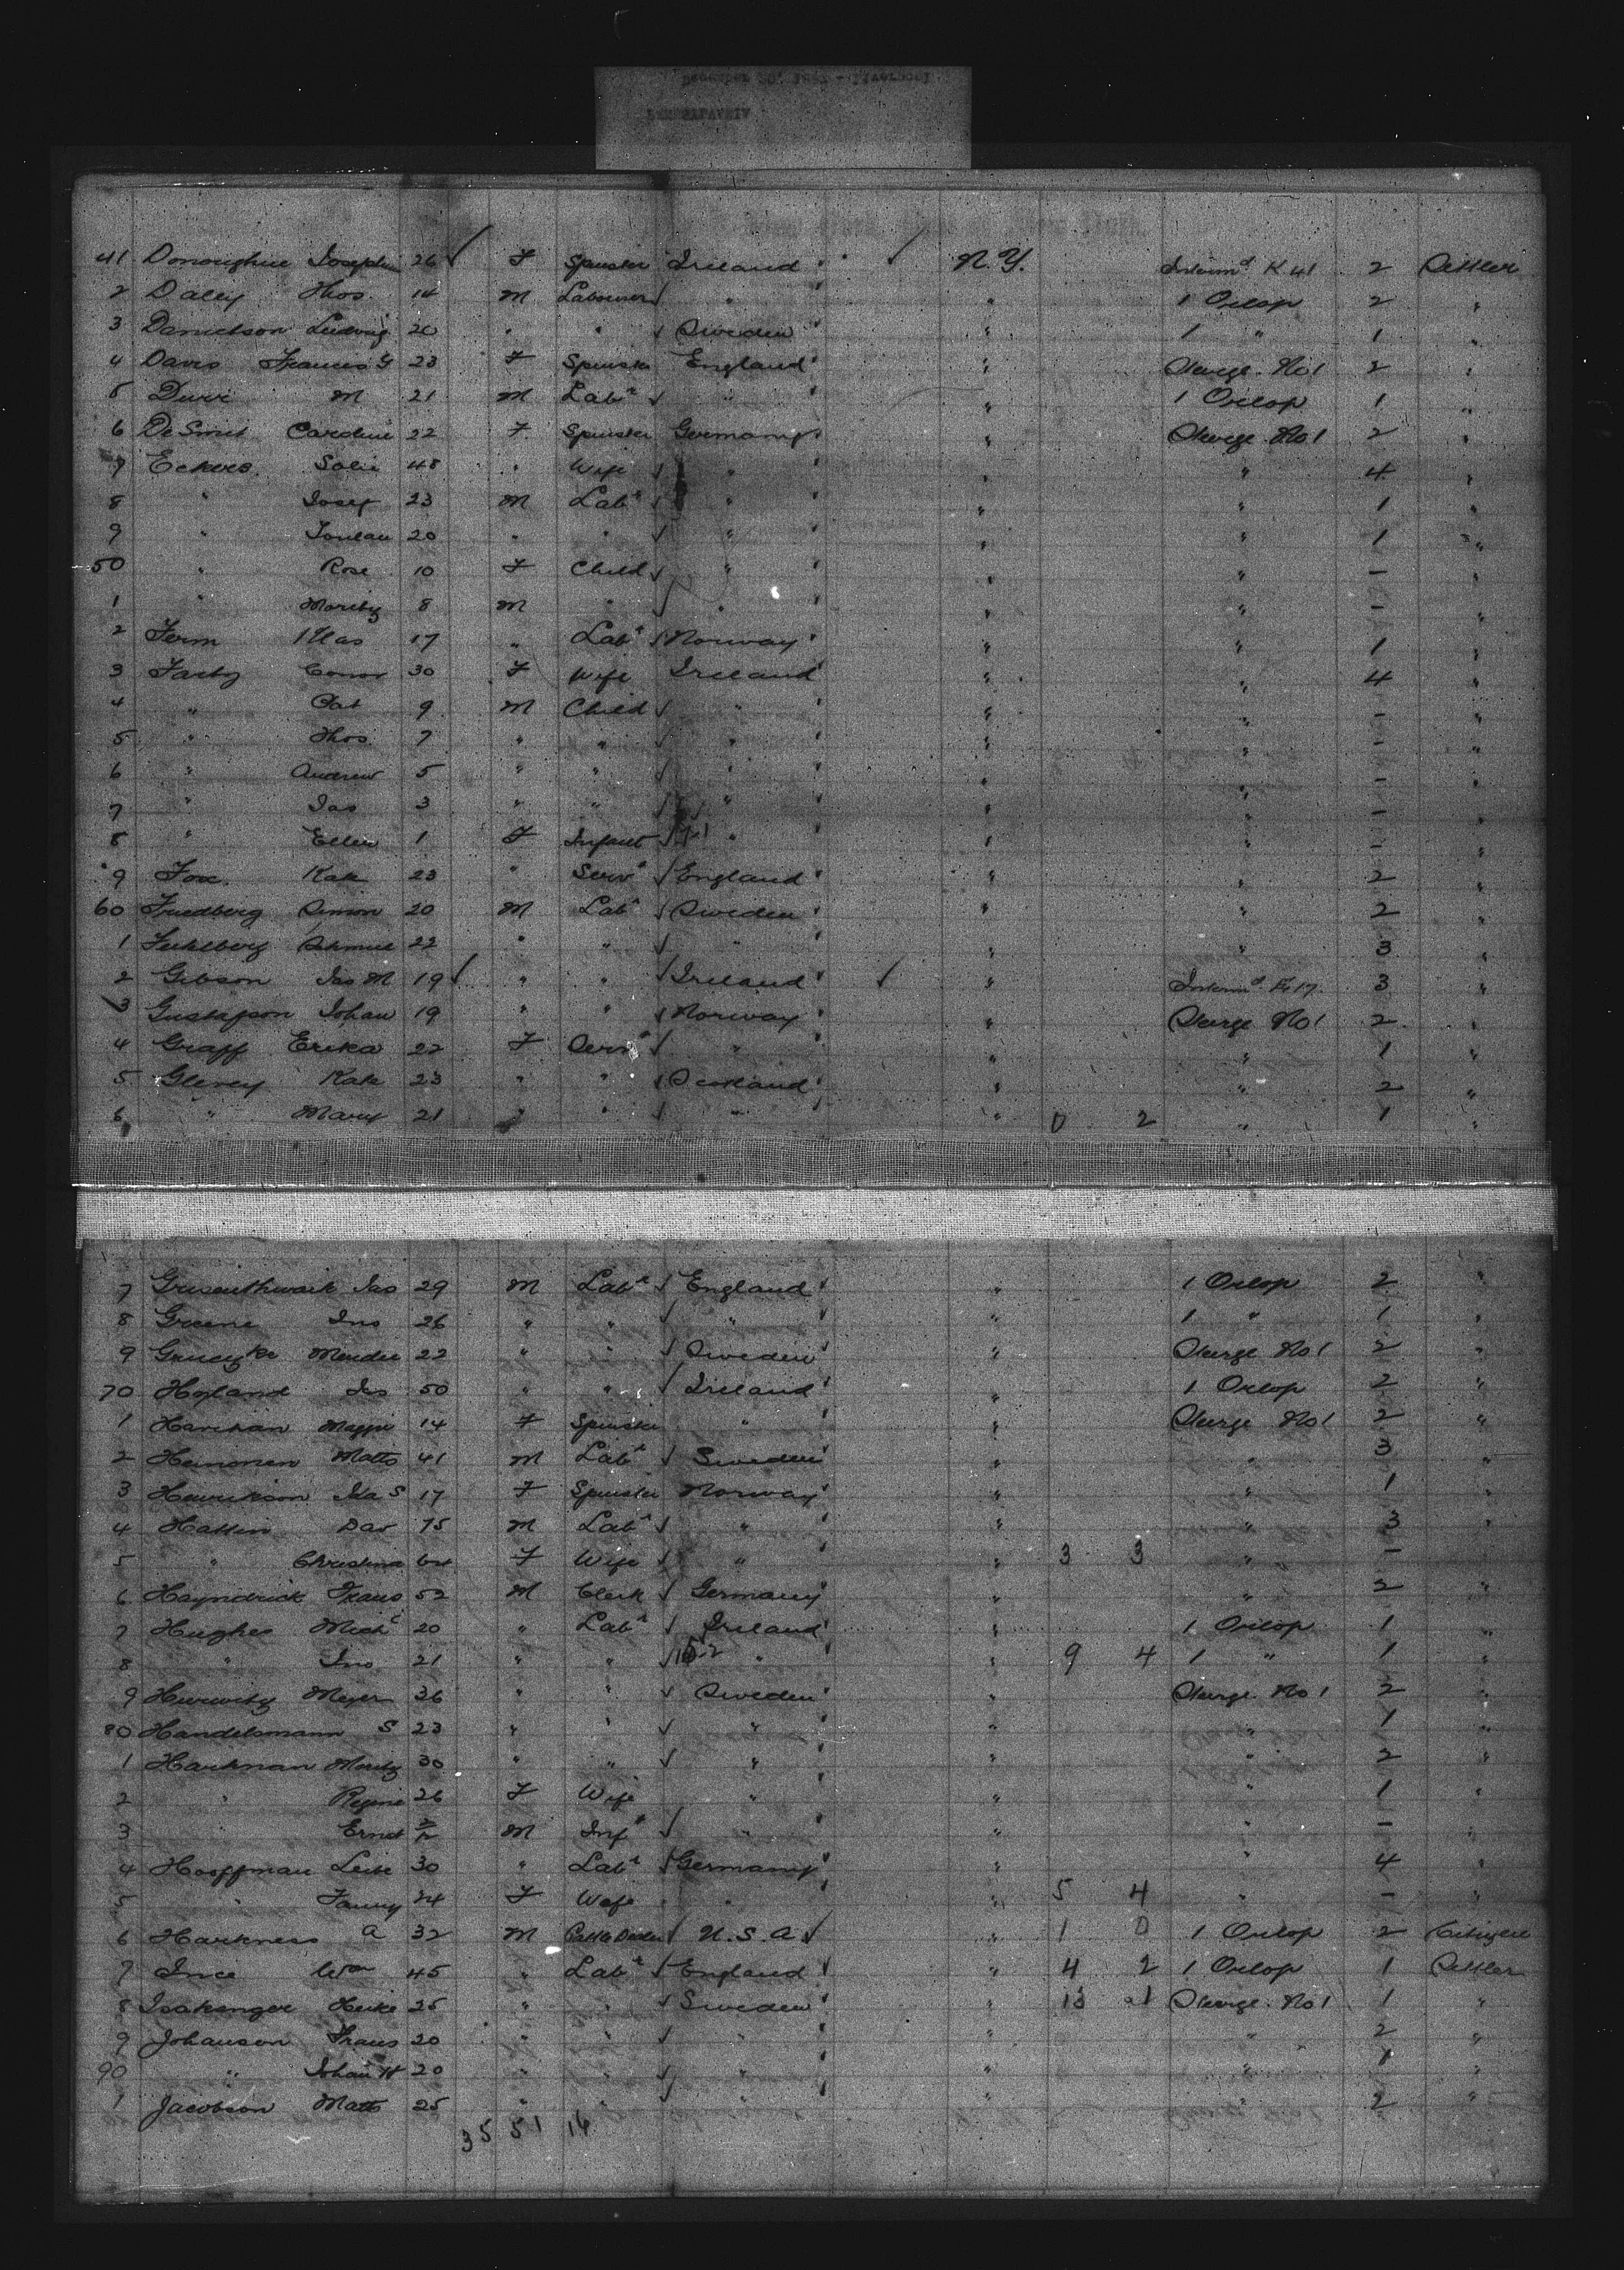 41 Donoughue Josephine 26 ✓ F Spinster Ireland ✓ N.Y. Interm^d K 41 2 Settler
2 Daley Thos 14 M Labourer ✓ " " 1 Orlop 2 "
3 Danielson Ludwig 20 " " ✓ Sweden " 1 " 1 "
4 Davis Frances G 23 F Spinster England " Steerge No 1 2 "
5 M 21 M Lab^r ✓ " " 1 Orlop 1 "
6 De Smet Caroline 22 F Spinster Germany " Steerge No 1 2 "
7 Eckers 48 " Wife ✓ " " " 4 "
8 " Josef 23 M Lab^r ✓ " " " 1 "
9 " 20 " " ✓ " " " 1 "
50 " Rose 10 F Child ✓ " " " - "
1 " Moritz 8 M " ✓ " " " - "
2 Ferm 17 " Lab^r ✓ Norway " " 1 "
3 30 F Wife Ireland " " 4 "
4 " Pat 9 M Child ✓ " " " - "
5 " Thos 7 " " ✓ " " " - "
6 " Andrew 5 " " ✓ " " " - "
7 " Jas 3 " " ✓ " " " - "
8 " Ellen 1 F Infant ✓ " " " - "
9 Fox Kate 23 " Serv^t ✓ England " " 2 "
60 Friedberg Simon 20 M Lab^r ✓ Sweden " " 2 "
1 22 " " ✓ " " " 3 "
2 Gibson Jas M 19 ✓ " " ✓ Ireland ✓ " Interm^d 3 "
3 Gustafson Johan 19 " " ✓ Norway " Steerge No 1 2 "
4 Graff Erika 22 F Serv^t ✓ " " " 1 "
5 Kate 23 " " ✓ Scotland " " 2 "
6 " Mary 21 " " ✓ " " 0 2 " 1 "
7 Jas 29 M Lab^r ✓ England " 1 Orlop 2 "
8 Greene Jno 26 " " ✓ " " 1 " 1 "
9 22 " " ✓ Sweden " Steerge No 1 2 "
70 Hoyland 50 " " ✓ Ireland " 1 Orlop 2 "
1 Maggie 14 F Spinster " " Steerge No 1 2 "
2 Heinonen Matts 41 M Lab^r ✓ Sweden " " 3 "
3 Henrikson Ida S 17 F Spinster Norway " " 1 "
4 75 M Lab^r ✓ " " " 3 "
5 " Christina 64 F Wife ✓ " " 3 3 " -
6 Hayndrick Frans 52 M Clerk ✓ Germany " " 2 "
7 Hughes Mich^l 20 " Lab^r ✓ Ireland " 1 Orlop 1 "
8 " Jno 21 " " ✓ " " 9 4 1 " 1 "
9 Hurwitz Meyer 36 " " ✓ Sweden " Steerge No 1 2 "
80 Handelsmann S 23 " " ✓ " " " 1 "
1 Harkman Moritz 30 " " ✓ " " " 2 "
2 " Regine 26 F Wife " " " 1 "
3 " Ernst M Inf^t ✓ " " " - "
4 Hooffman Leibe 30 " Lab^r ✓ Germany " " 4 "
5 " Fanny 24 F Wife " " 5 4 " - "
6 Harkness A 32 M Cattle Dealer ✓ U.S.A ✓ " 1 0 1 Orlop 2 Citizen
7 Ince Wm 45 " Lab^r ✓ England " 4 2 1 Orlop 1 Settler
8 Heike 25 " " ✓ Sweden " 13 1 Steerge No 1 1 "
9 Johanson Frans 20 " " ✓ " " " 2 "
90 " Johan H 20 " " ✓ " " " 1 "
1 Jacobson Matts 25 " " ✓ " " " 2 "
35 51 16